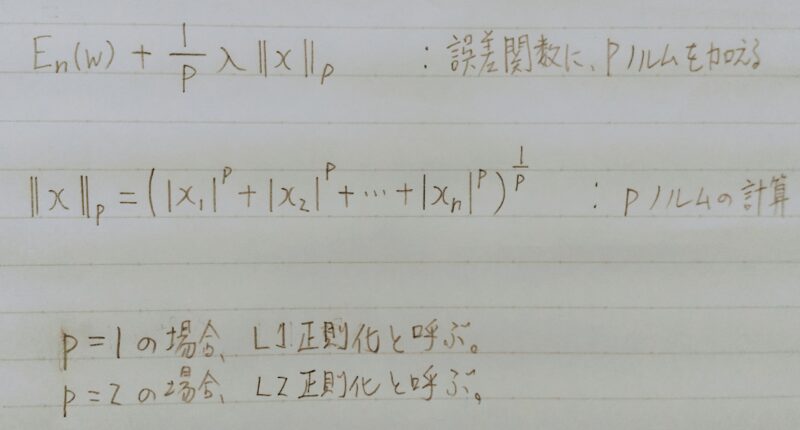 Eₙ(w) + 1/p λ ‖x‖ₚ : 誤差関数に、pノルムを加える
‖x‖ₚ = (|x₁|ᵖ + |x₂|ᵖ + ⋯ + |xₙ|ᵖ)^(1/p) : pノルムの計算
p = 1 の場合、L1正則化と呼ぶ。
p = 2 の場合、L2正則化と呼ぶ。